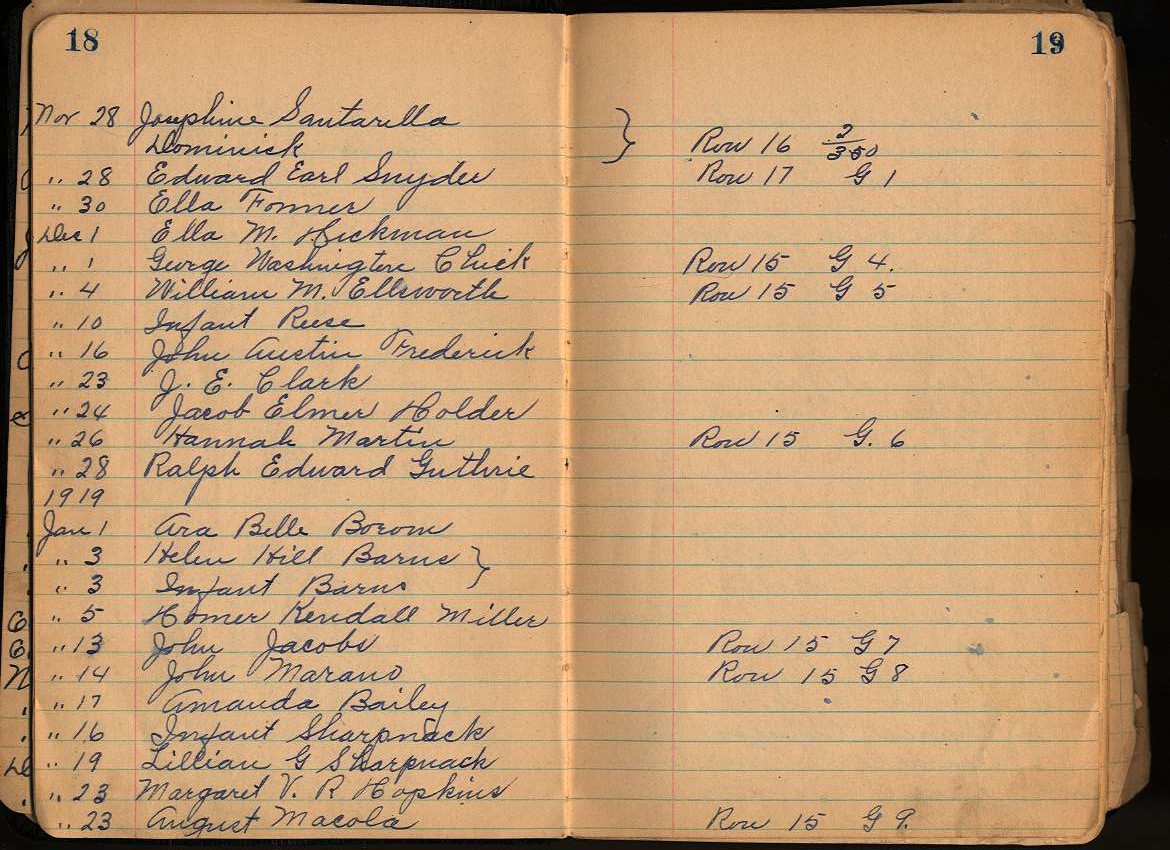 18 19
Nov 28 Josephine Santarella
Dominick } Row 16 2/350
" 28 Edward Earl Snyder Row 17 G 1
" 30 Ella Fonner
Dec 1 Ella M. Hickman
" 1 George Washington Chick Row 15 G 4.
" 4 William M. Ellsworth Row 15 G 5
" 10 Infant Reese
" 16 John Austin Frederick
" 23 J. E. Clark
" 24 Jacob Elmer Holder
" 26 Hannah Martin Row 15 G. 6
" 28 Ralph Edward Guthrie
1919
Jan 1 Ara Belle Borom
" 3 Helen Hill Barns }
" 3 Infant Barns
" 5 Homer Kendall Miller
" 13 John Jacobs Row 15 G 7
" 14 John Marano Row 15 G 8
" 17 Amanda Bailey
" 16 Infant Sharpnack
" 19 Lillian G Sharpnack
" 23 Margaret V. R Hopkins
" 23 August Macola Row 15 G 9.